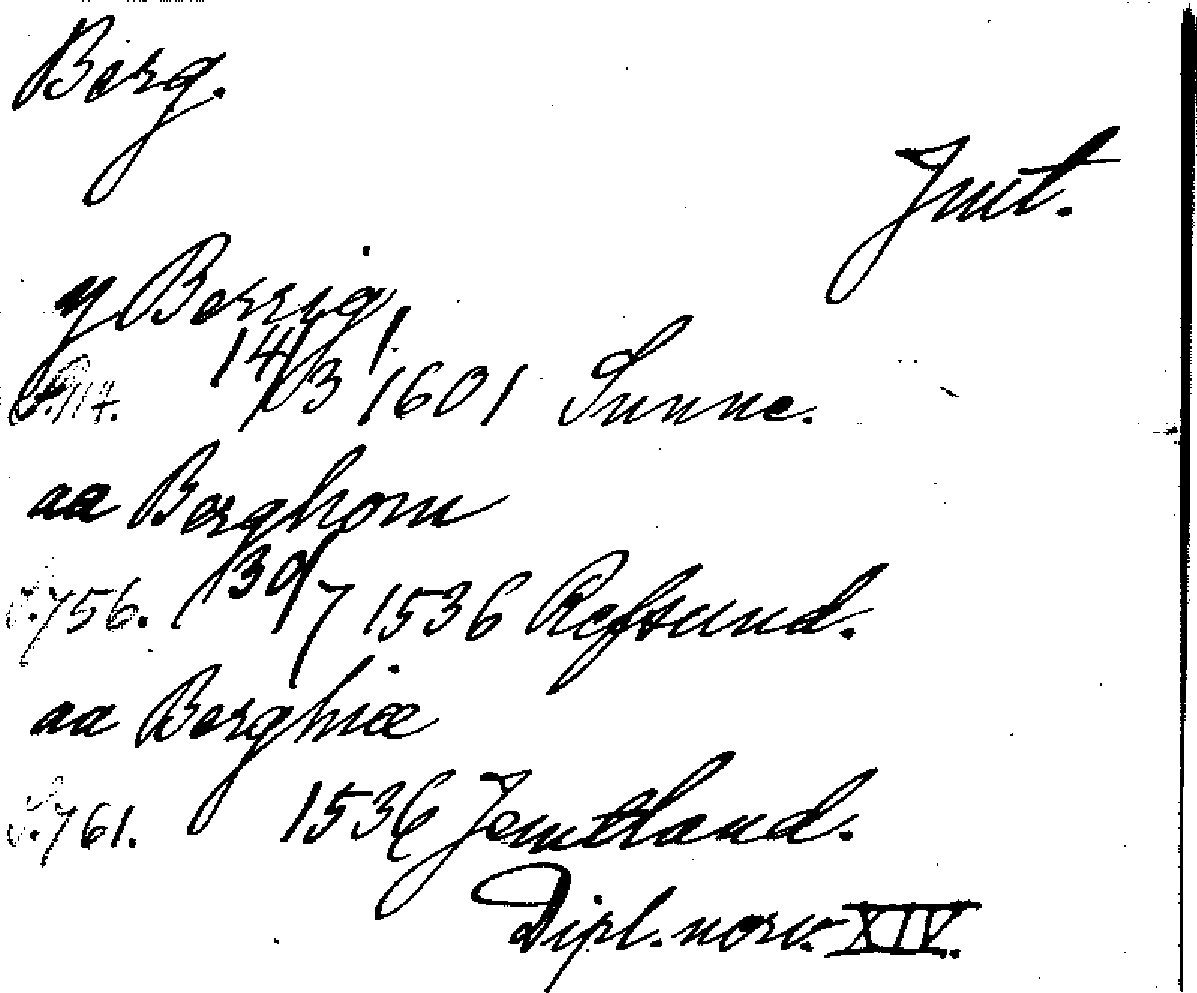 Berg.
Jmt.
y Berrig
S. 117. 14/3 1601 Sunne.
aa Berghom
S. 756. 30/7 1536 Refsund.
aa Berghiæ
S. 761. 1536 Jemtland.
Dipl. norv. XIV.